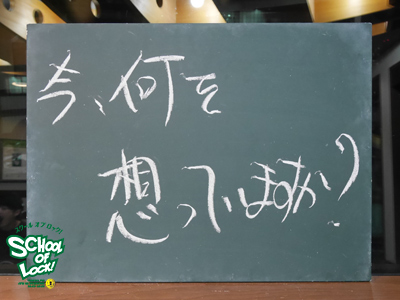 今、何を
想っていますか?
スクール オブ ロック!
SCHOOL
OF
LOCK!